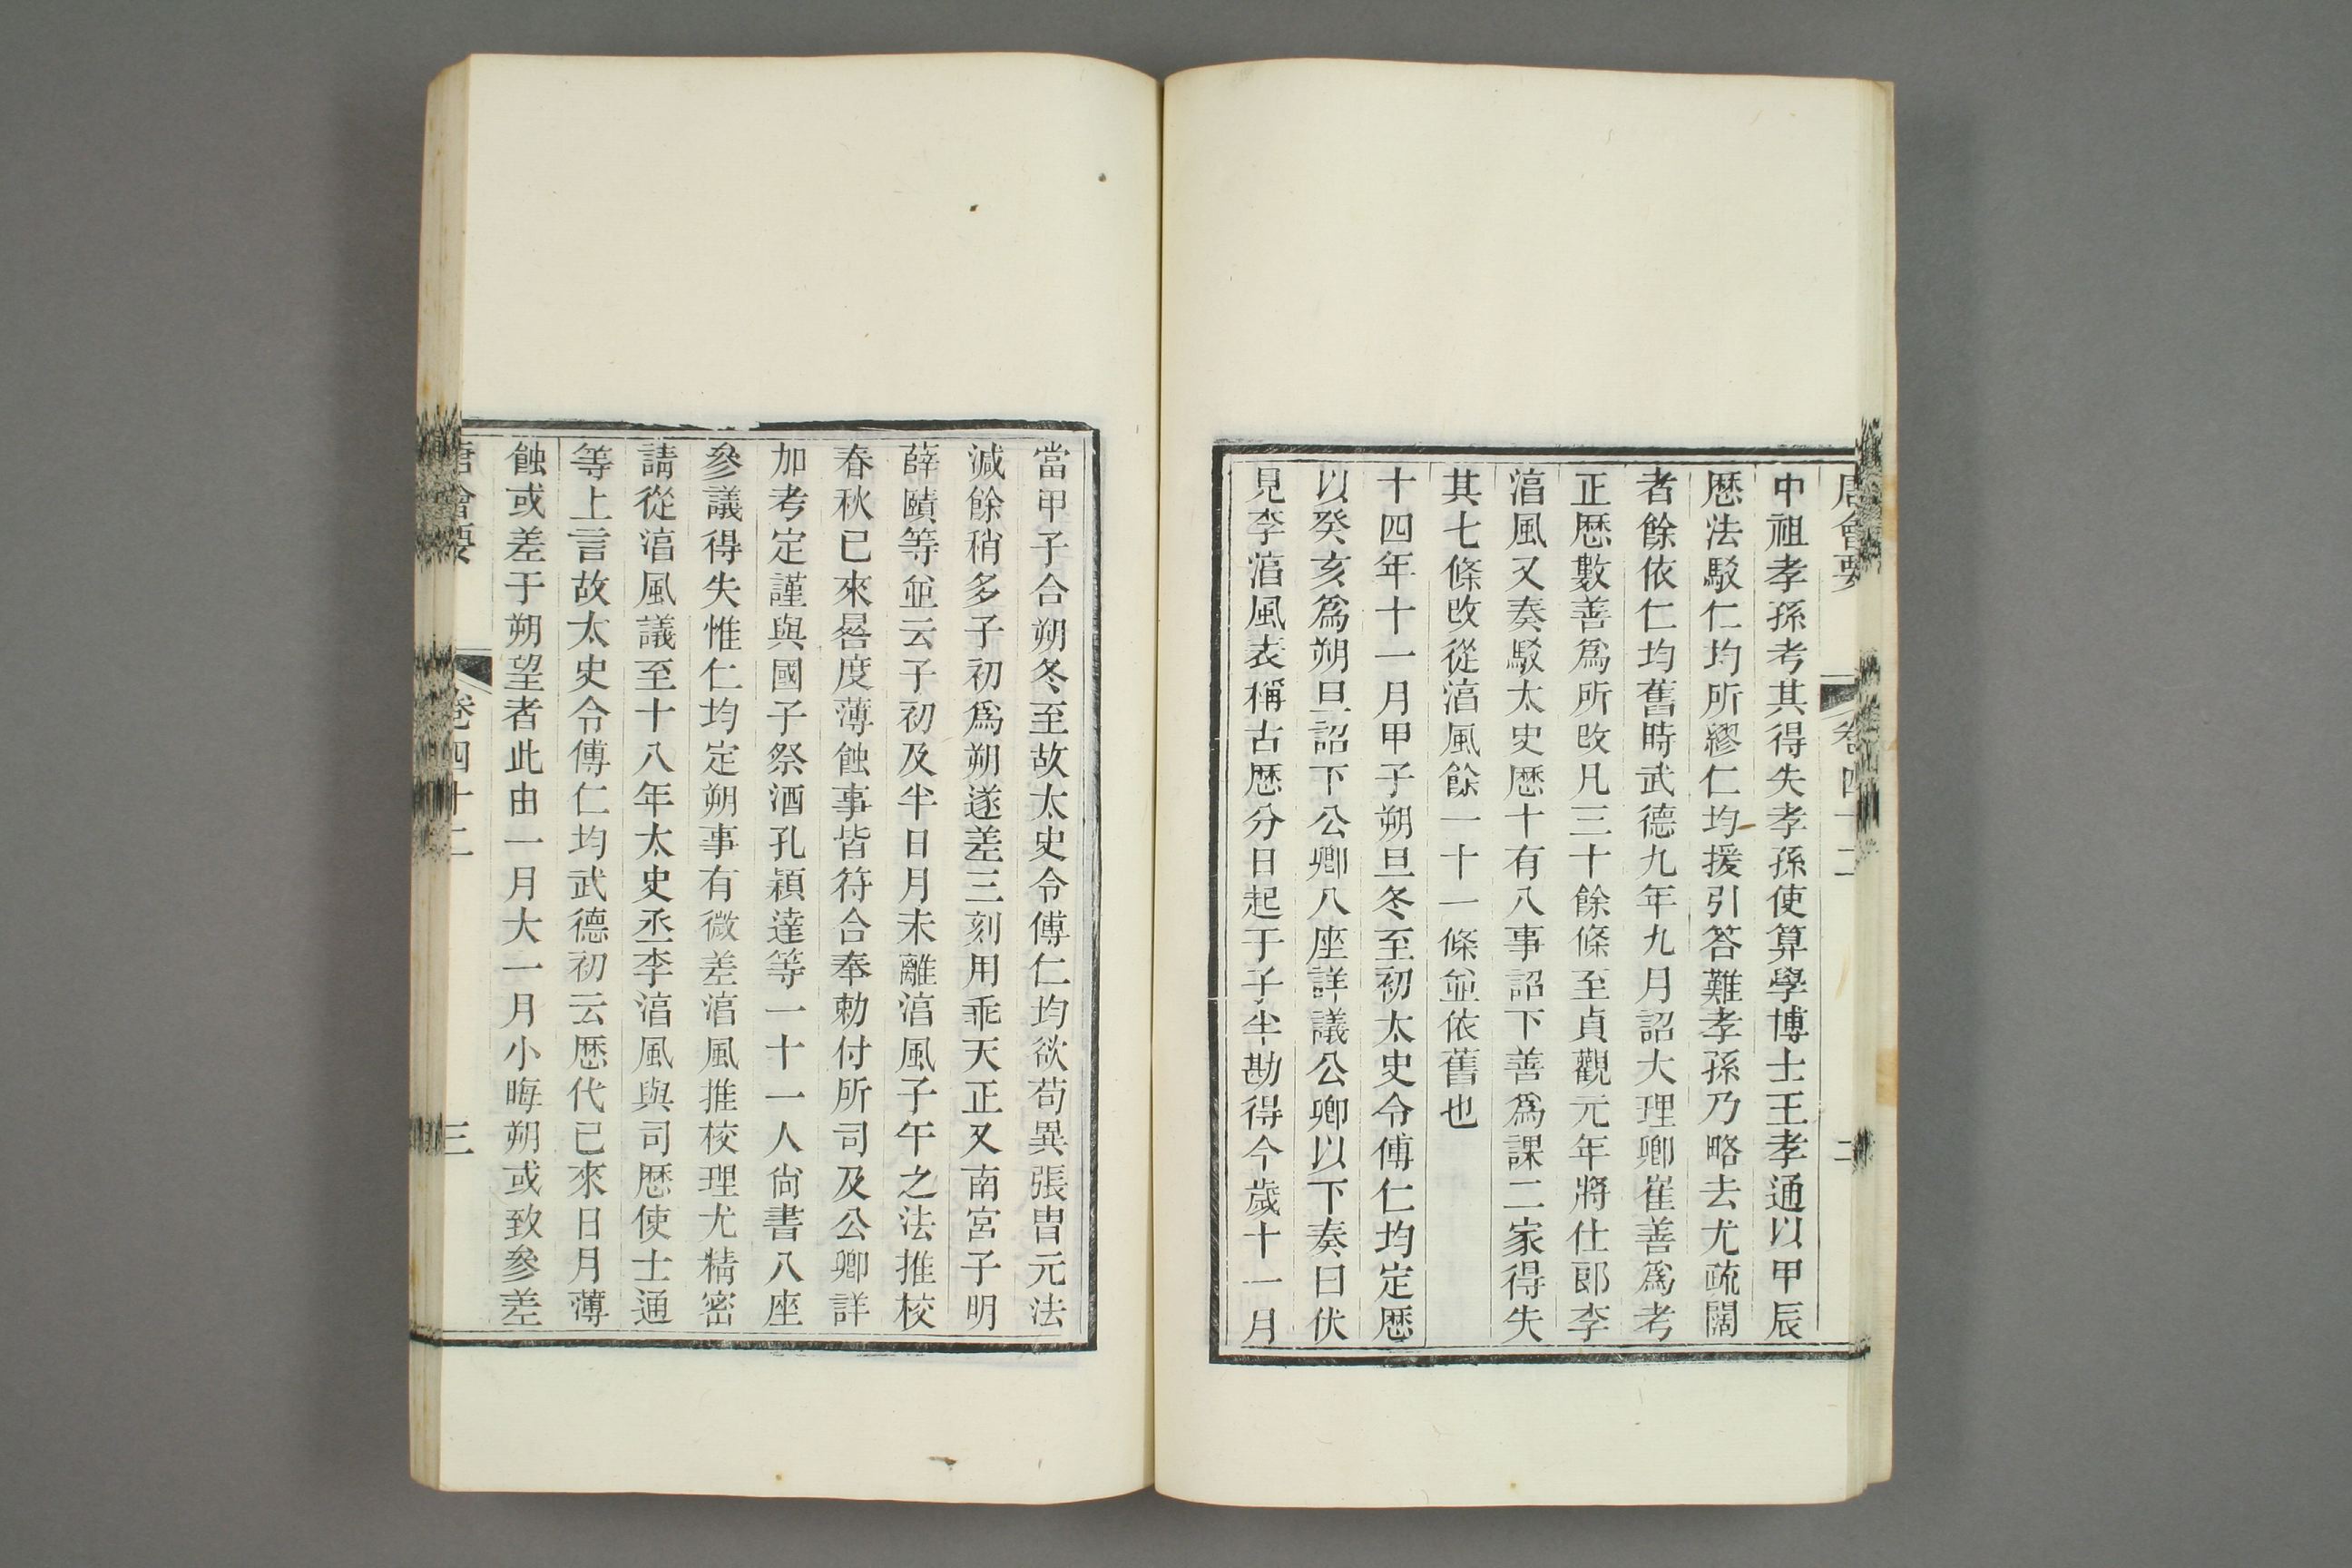 唐會要 卷四十二 二
中祖孝孫考其得失孝孫使算學博士王孝通以甲辰
歷法駁仁均所繆仁均援引答難孝孫乃略去尤疏闊
者餘依仁均舊時武德九年九月詔大理卿崔善爲考
正歷數善爲所改凡三十餘條至貞觀元年將仕郎李
淳風又奏駁太史歷十有八事詔下善爲課二家得失
其七條改從淳風餘一十一條並依舊也
十四年十一月甲子朔旦冬至初太史令傅仁均定歷
以癸亥爲朔旦詔下公卿八座詳議公卿以下奏曰伏
見李淳風表稱古歷分日起于子半勘得今歲十一月
當甲子合朔冬至故太史令傅仁均欲苟異張冑元法
減餘稍多子初爲朔遂差三刻用乖天正又南宮子明
薛頤等並云子初及半日月未離淳風子午之法推校
春秋已來晷度薄蝕事皆符合奉勅付所司及公卿詳
加考定謹與國子祭酒孔穎達等一十一人尙書八座
參議得失惟仁均定朔事有微差淳風推校理尤精密
請從淳風議至十八年太史丞李淳風與司歷使士通
等上言故太史令傅仁均武德初云歷代已來日月薄
蝕或差于朔望者此由一月大一月小晦朔或致參差
唐會要 卷四十二 三